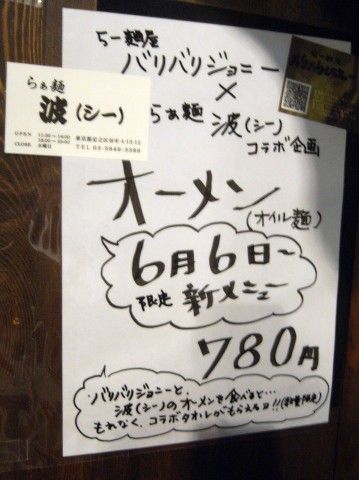 らー麺屋
バリバリジョニー
×
らぁ麺 波(シー)
コラボ企画
オーメン
(オイル麺)
6月6日〜
限定 新メニュー
780円
バリバリジョニーと、
波(シー)のオーメンを食べると…
もれなく、コラボタオルがもらえるヨ!!(数量限定)
らぁ麺
波(シー)
OPEN 11:30〜14:00
18:00〜
CLOSE 水曜日
TEL 03-3849-3388